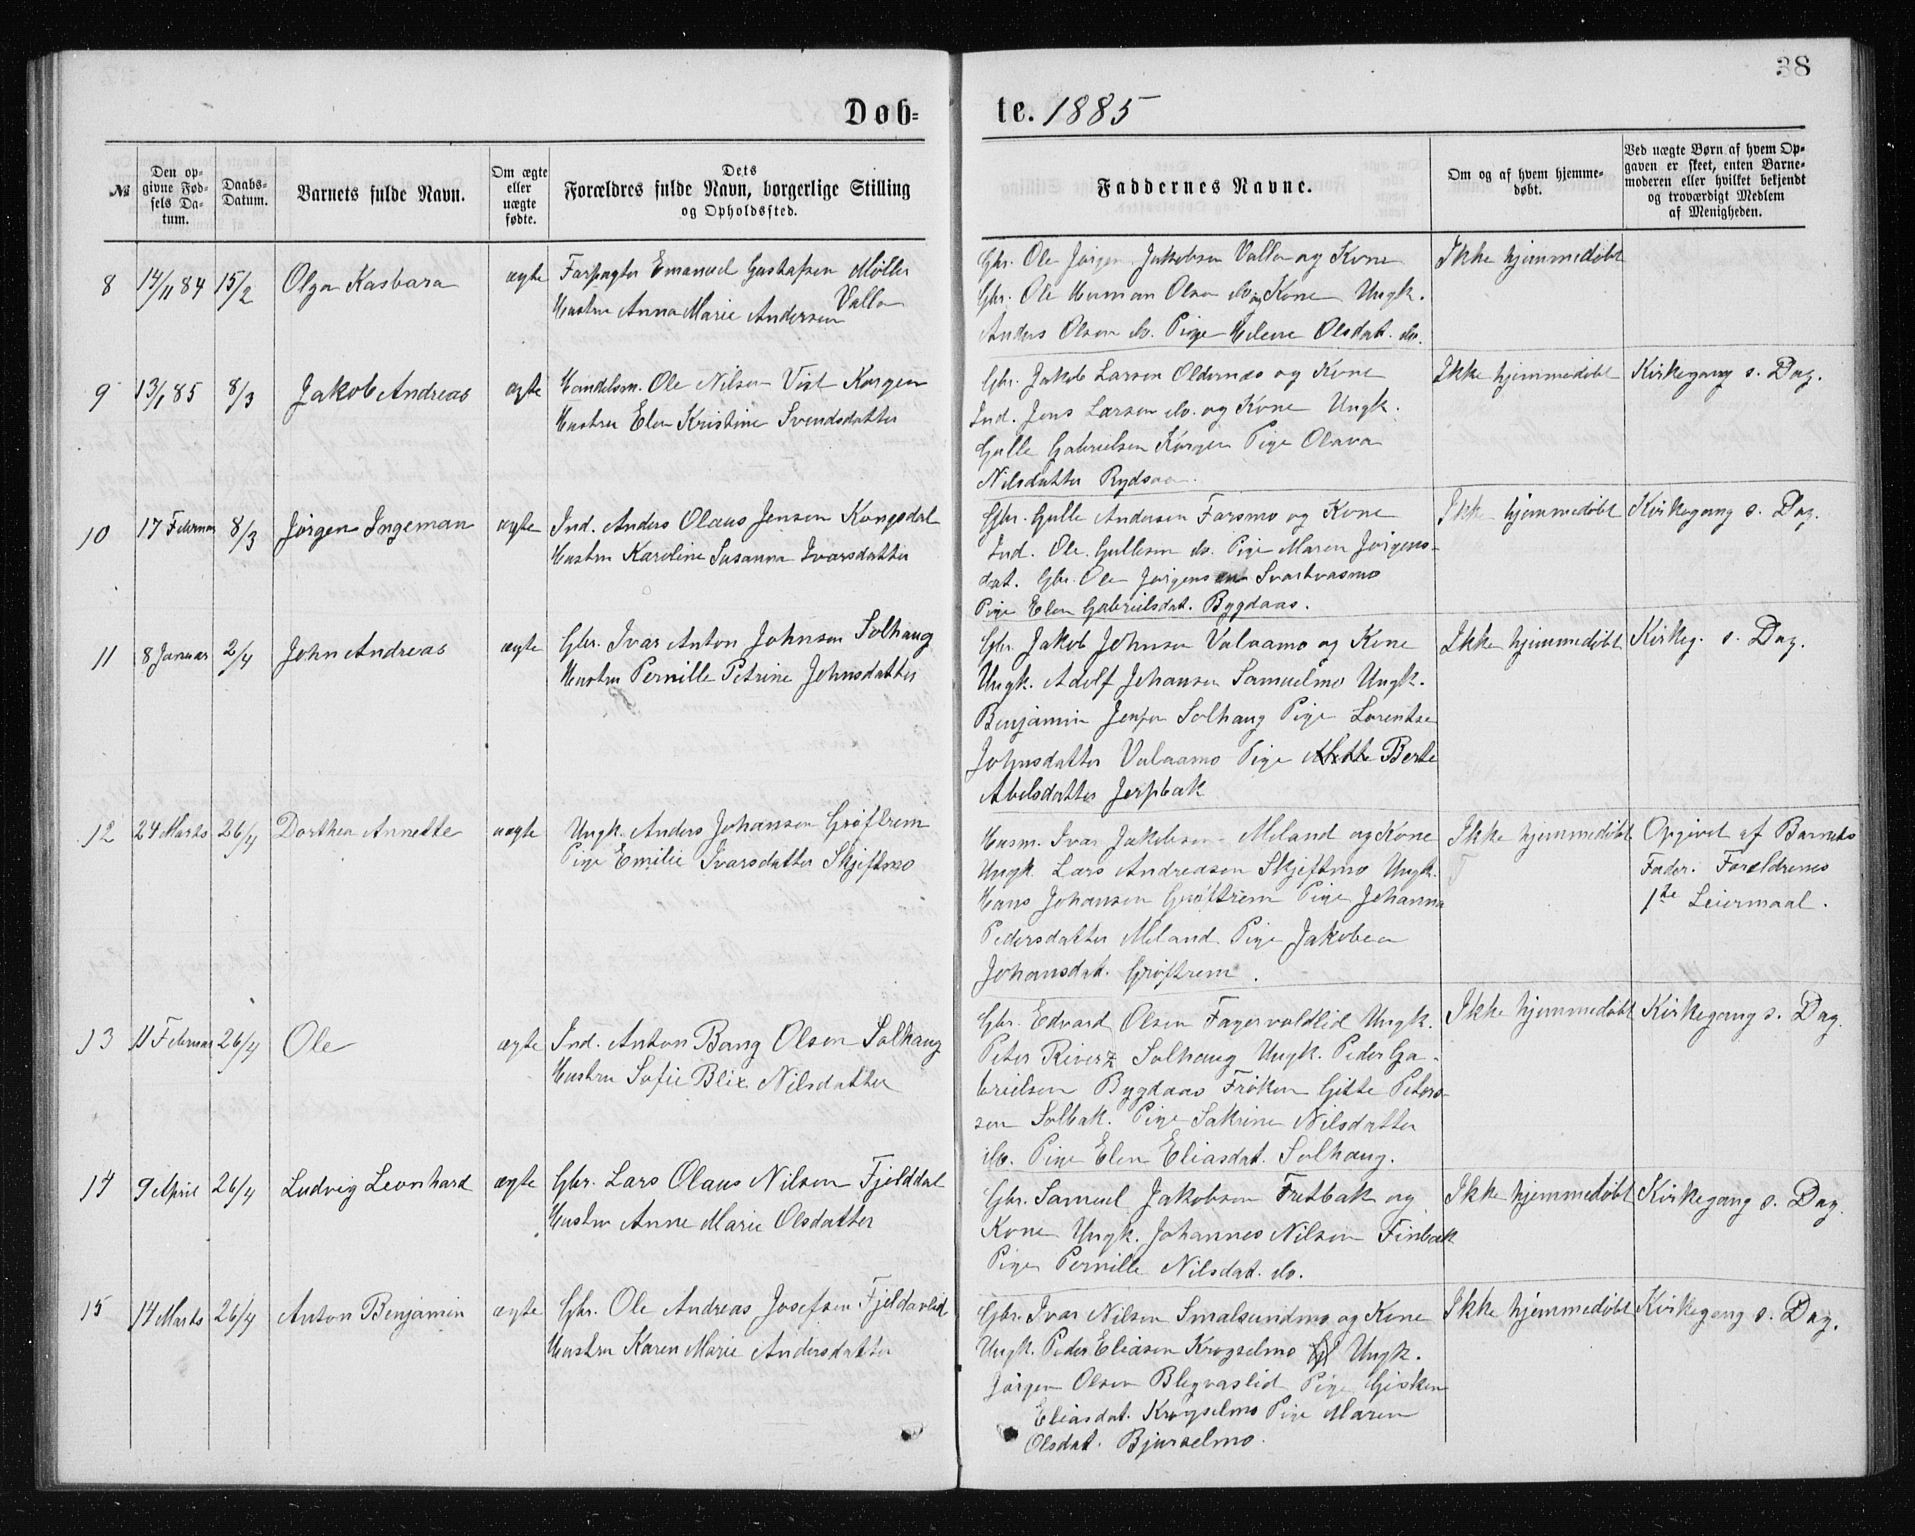 38
Døb=
te. 1885
№
Den op-
givne Fød-
sels Da-
tum.
Daabs-
Datum.
Barnets fulde Navn.
Om ægte
eller
uægte
fødte.
Dets
Forældres fulde Navn, borgerlige Stilling
og Opholdssted.
Faddernes Navne.
Om og af hvem hjemme-
døbt.
Ved uægte Børn af hvem Op-
gaven er skeet, enten Barne-
moderen eller hvilket bekjendt
og troværdigt Medlem
af Menigheden.
8 14/11 84 15/2 Olga Kasbara ægte Forpagter Emanuel Gustafsen Møller
Hustru Anna Marie Andersen Valla
Gbr. Ole Jørgen Jakobsen Valla og Kone
Gbr. Ole Herman Olsen do. og Kone Ungk.
Anders Olsen do. Pige Helene Olsdat. do.
Ikke hjemmedøbt
9 13/1 85 8/3 Jakob Andreas ægte Handelsm. Ole Nilsen Vist Korgen
Hustru Elen Kristine Svendsdatter
Gbr. Jakob Larsen Oldernæs og Kone
Ind. Jens Larsen do. og Kone Ungk.
Gulle Gabrielsen Korgen Pige Olava
Nilsdatter Rydsaa.
Ikke hjemmedøbt Kirkegang s. Dag.
10 17 Februar 8/3 Jørgen Ingeman ægte Ind. Anders Olaus Jensen Kongsdal
Hustru Karoline Susanna Ivarsdatter
Gbr. Gulle Andersen Farsmo og Kone
Ind. Ole Gullesen do. Pige Maren Jørgens-
dat. Gbr. Ole Jørgensen Svartvasmo
Pige Elen Gabrielsdat. Bygdaas.
Ikke hjemmedøbt Kirkegang s. Dag.
11 8 Januar 2/4 John Andreas ægte Gbr. Ivar Anton Johnsen Solhaug
Hustru Pernille Petrine Johnsdatter
Gbr. Jakob Johnsen Valaamo og Kone
Ungk. Adolf Johansen Samuelmo Ungk.
Benjamin Jensen Solhaug Pige Lorentse
Johnsdatter Valaamo Pige Berte
Abelsdatter Jerpbak
Ikke hjemmedøbt Kirkeg. s. Dag.
12 24 Marts 26/4 Dorthea Annette uægte Ungk. Anders Johansen Grøftrem
Pige Emilie Ivarsdatter Skjeftmo
Husm. Ivar Jakobsen Meland og Kone
Ungk. Lars Andreasen Skjeftmo Ungk.
Hans Johansen Grøftrem Pige Johanna
Pedersdatter Meland Pige Jakobea
Johansdat. Grøftrem.
Ikke hjemmedøbt Opgivet af Barnets
Fader. Forældrenes
1ste Leiermaal.
13 11 Februar 26/4 Ole ægte Ind. Anton Bang Olsen Solhaug
Hustru Sofie Blix Nilsdatter
Gbr. Edvard Olsen Fagervoldlid Ungk.
Peter Riverz Solhaug Ungk. Peder Ga-
brielsen Bygdaas Frøken Gitte Peters-
sen Solbak. Pige Sakrine Nilsdatter
do. Pige Elen Eliasdat. Solhaug.
Ikke hjemmedøbt Kirkegang s. Dag.
14 9 April 26/4 Ludvig Leonhard ægte Gbr. Lars Olaus Nilsen Fjelddal
Hustru Anne Marie Olsdatter
Gbr. Samuel Jakobsen Fretbak og
Kone Ungk. Johannes Nilsen Finbak
Pige Pernille Nilsdat. do.
Ikke hjemmedøbt Kirkegang s. Dag.
15 14 Marts 26/4 Anton Benjamin ægte Gbr. Ole Andreas Josefsen Fjeldavlid
Hustru Karen Marie Andersdatter
Gbr. Ivar Nilsen Smalsundmo og Kone
Ungk. Peder Eliasen Krogselmo Ungk.
Jørgen Olsen Blegvaslid Pige Gisken
Eliasdat. Krogselmo Pige Maren
Olsdat. Bjurselmo.
Ikke hjemmedøbt Kirkegang s. Dag.